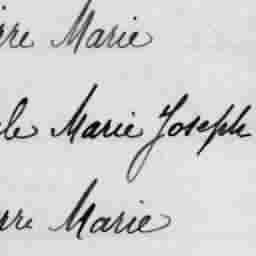 rre Marie
le Marie Joseph
rre Marie